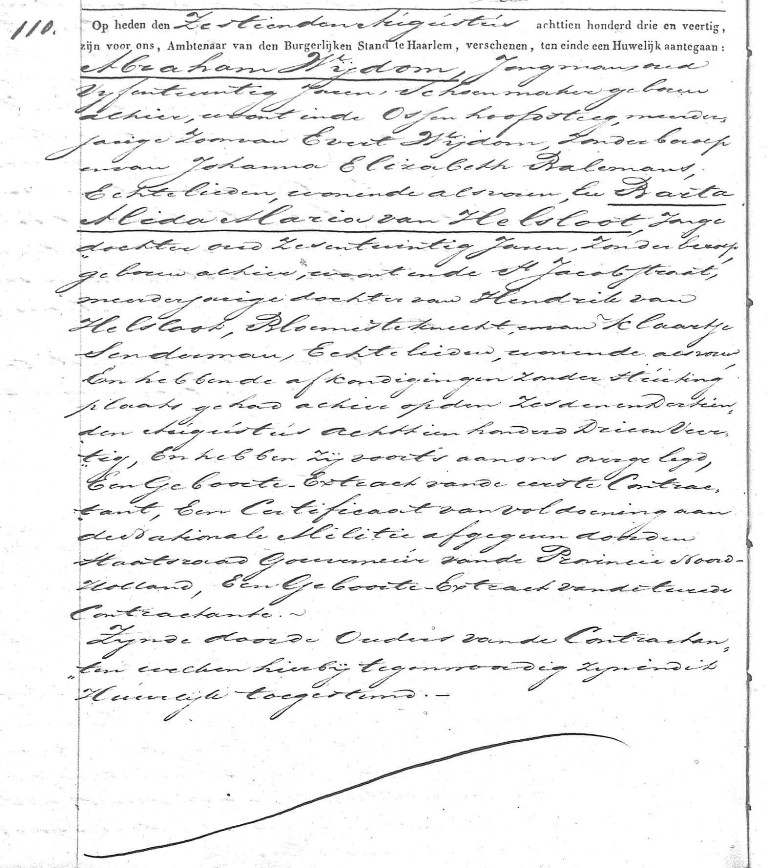 110.
Op heden den Zestienden Augustus achttien honderd drie en veertig,
zijn voor ons, Ambtenaar van den Burgerlijken Stand te Haarlem, verschenen, ten einde een Huwelijk aantegaan:
Abraham Wijdom, Jongman, oud
Vyfentwintig Jaren, Schoenmaker, geboren
alhier, woont in de Ossenhoofdsteeg, meerder-
jarige Zoon van Evert Wijdom, Zonder beroep
en van Johanna Elizabeth Balemans,
Echtelieden, wonende als voren, En Barta
Alida Maria van Helsloot, Jonge
dochter oud Zesentwintig Jaren, Zonder beroep,
geboren alhier, woont in de St Jacobstraat,
meerderjarige dochter van Hendrik van
Helsloot, Bloemisteknecht, en van Klaartje
Senderman, Echtelieden, wonende als voren,
En hebbende afkondigingen zonder stuiting
plaats gehad alhier op den Zesden en Dertien-
den Augustus achttien honderd Drie en Veer-
tig, En hebben zij voorts aan ons overgelegd,
Een Geboorte-Extract van de eerste Contrac-
tant, Een Certificaat van voldoening aan
de Nationale Militie afgegeven door den
Staatsraad Gouverneur van de Provincie Noord-
Holland, Een Geboorte-Extract van de tweede
Contractante. ~
Zynde door de Ouders van de Contractan-
ten welken hierbij tegenwoordig zyn in dit
Huwelijk toegestemd. —